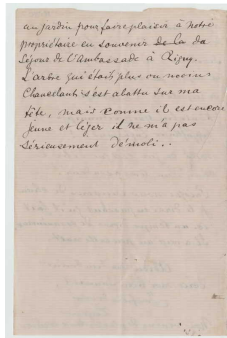 au jardin pour faire plaisir à notre
propriétaire en souvenir de la du
séjour de l'Ambassade à Rigny.
L'arbre qui était plus ou moins
Chancelant s'est abattu sur ma
tête, mais comme il est encore
jeune et léger il ne m'a pas
sérieusement démoli.